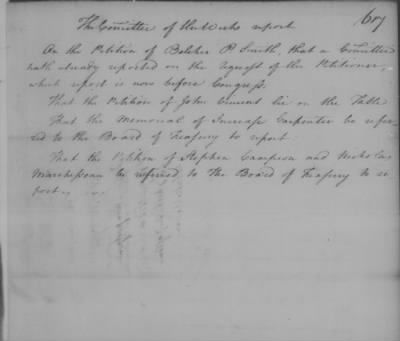 607
The Committee of the Week report
On the Petition of Belcher P. Smith, that a Committee
hath already reported on the request of the Petitioner,
which report is now before Congress.
That the Petition of John Vincent lie on the Table
That the Memorial of Increase Carpenter be refer-
ed to the Board of Treasury to report.
That the Petition of Stephen Campion and Nicholas
be referred to the Board of Treasury to re
port